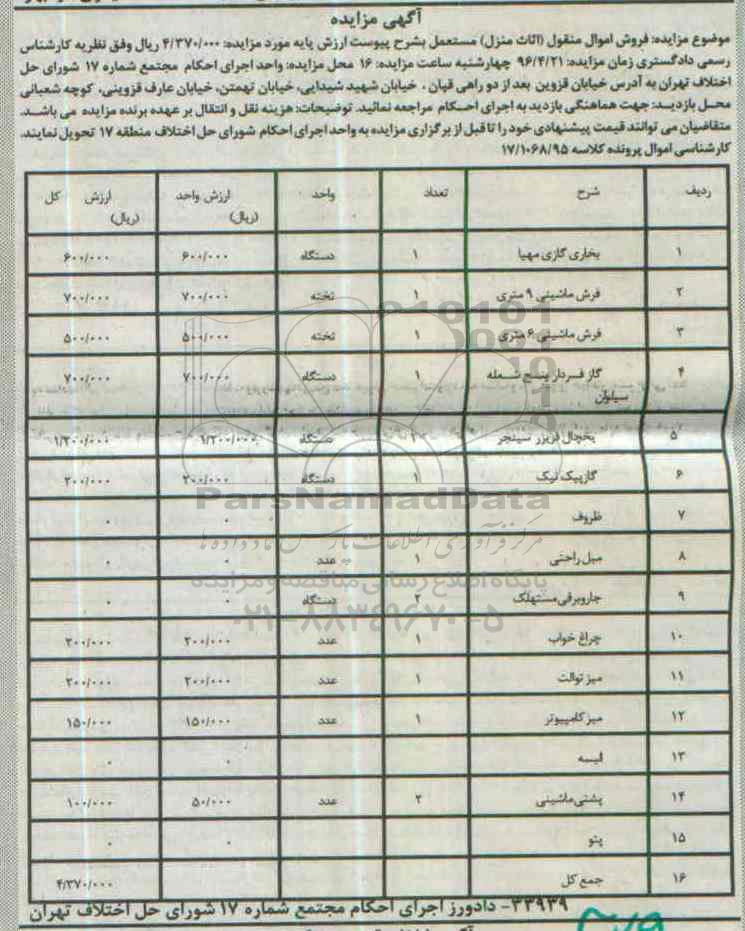 آگهی مزایده
موضوع مزایده: فروش اموال منقول (اثاث منزل) مستعمل بشرح پیوست ارزش پایه مورد مزایده: ۴/۳۷۰/۰۰۰ ریال وفق نظریه کارشناس
رسمی دادگستری زمان مزایده: ۹۶/۴/۲۱ چهارشنبه ساعت مزایده: ۱۶ محل مزایده: واحد اجرای احکام مجتمع شماره ۱۷ شورای حل
اختلاف تهران به آدرس خیابان قزوین بعد از دو راهی قپان ، خیابان شهید شیدایی، خیابان تهمتن، خیابان عارف قزوینی، کوچه شعبانی
محل بازدید: جهت هماهنگی بازدید به اجرای احکام مراجعه نمائید. توضیحات: هزینه نقل و انتقال بر عهده برنده مزایده می باشد.
متقاضیان می توانند قیمت پیشنهادی خود را تا قبل از برگزاری مزایده به واحد اجرای احکام شورای حل اختلاف منطقه ۱۷ تحویل نمایند.
کارشناسی اموال پرونده کلاسه ۱۷/۱۰۶۸/۹۵
ردیف شرح تعداد واحد ارزش واحد (ریال) ارزش کل (ریال)
۱ بخاری گازی مهیا ۱ دستگاه ۶۰۰/۰۰۰ ۶۰۰/۰۰۰
۲ فرش ماشینی ۹ متری ۱ تخته ۷۰۰/۰۰۰ ۷۰۰/۰۰۰
۳ فرش ماشینی ۶ متری ۱ تخته ۵۰۰/۰۰۰ ۵۰۰/۰۰۰
۴ گاز فردار پنج شعله سیلوان ۱ دستگاه ۷۰۰/۰۰۰ ۷۰۰/۰۰۰
۵ یخچال فریزر سینجر ۱ دستگاه ۱/۲۰۰/۰۰۰ ۱/۲۰۰/۰۰۰
۶ گازپیک نیک ۱ دستگاه ۲۰۰/۰۰۰ ۲۰۰/۰۰۰
۷ ظروف ۰ ۰
۸ مبل راحتی ۱ عدد ۰ ۰
۹ جاروبرقی مستهلک ۲ دستگاه ۰ ۰
۱۰ چراغ خواب ۱ عدد ۲۰۰/۰۰۰ ۲۰۰/۰۰۰
۱۱ میز توالت ۱ عدد ۲۰۰/۰۰۰ ۲۰۰/۰۰۰
۱۲ میز کامپیوتر ۱ عدد ۱۵۰/۰۰۰ ۱۵۰/۰۰۰
۱۳ البسه ۰ ۰
۱۴ پشتی ماشینی ۲ عدد ۵۰/۰۰۰ ۱۰۰/۰۰۰
۱۵ پتو ۰ ۰
۱۶ جمع کل ۴/۳۷۰/۰۰۰
۳۳۹۳۹- دادورز اجرای احکام مجتمع شماره ۱۷ شورای حل اختلاف تهران
ParsNamadData
مرکز فرآوری اطلاعات پارس نماد داده ها
پایگاه اطلاع رسانی مناقصه و مزایده
۰۲۱-۸۸۳۴۹۶۷۰-۵